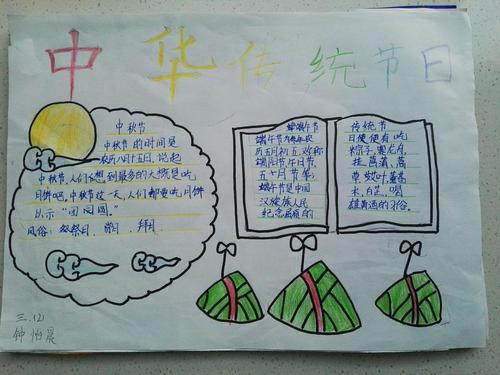 中华传统节日
中秋节
中秋节的时间是
农历八月十五日,说起
中秋节,人们想到最多的大概是吃
月饼吧。中秋节这一天,人们都要吃月饼
以示"团圆"。
风俗:祭月、赏月、拜月
端午节
端午节为每年农
历五月初五,又称
端阳节、午日节、
五月节等;
端午节是中国
汉族人民
纪念屈原的
传统节
日便有吃
粽子,赛龙舟,
挂菖蒲、蒿
草、艾叶,薰苍
术、白芷,喝
雄黄酒的习俗。
三.(2)
钟怡晨